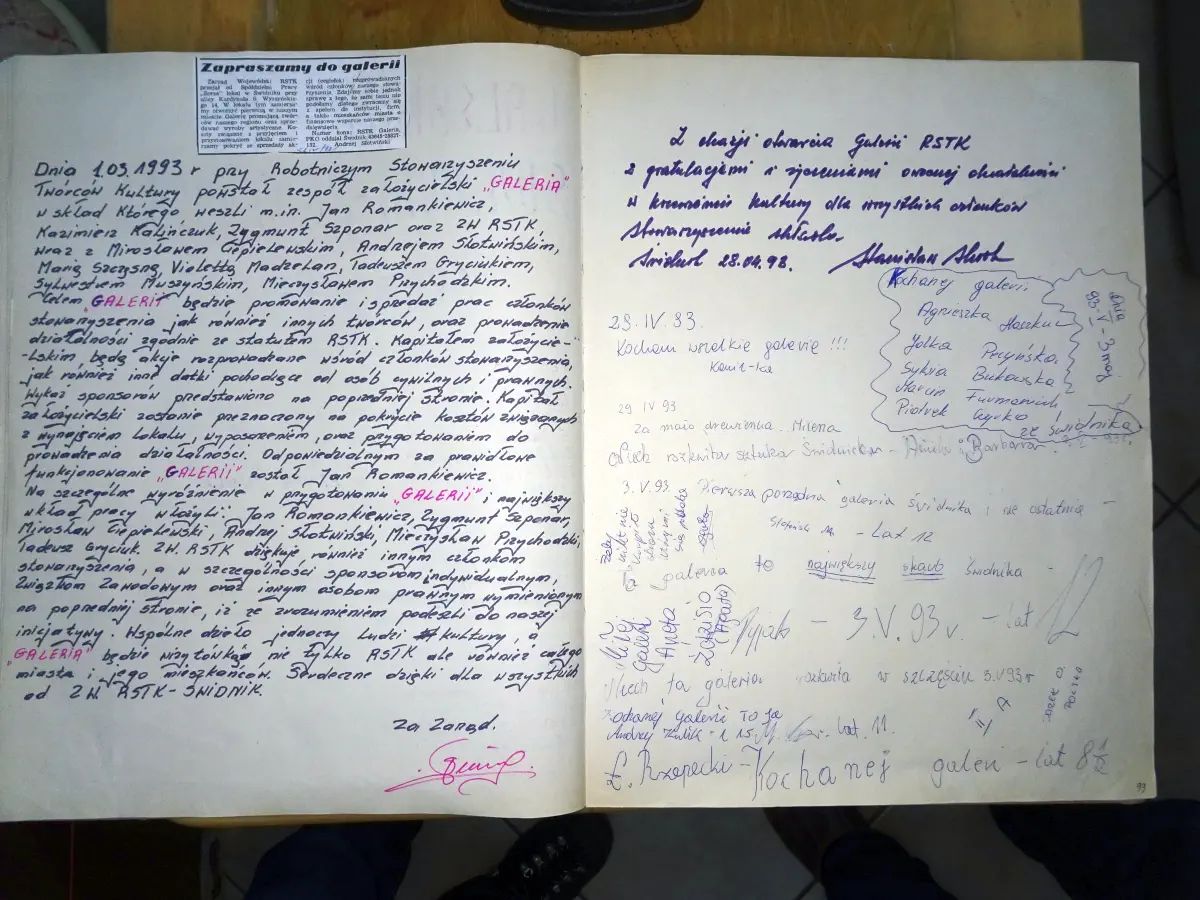 Zapraszamy do galerii
Zarząd Wojewódzki RSTK
przejął od Spółdzielni Pracy
lokal w Świdniku przy
ulicy Kardynała S. Wyszyńskie-
go 14. W lokalu tym zamierza-
my otworzyć pierwszą w naszym
mieście Galerię promującą twór-
ców naszego regionu oraz sprze-
dawać wyroby artystyczne. Ko-
szty związane z przyjęciem i
przystosowaniem lokalu zamie-
rzamy pokryć ze sprzedaży ak-
cji (cegiełek) rozprowadzanych
wśród członków naszego stowa-
rzyszenia. Zdajemy sobie jednak
sprawę z tego, że sami temu nie
podołamy dlatego zwracamy się
z apelem do instytucji, firm,
a także mieszkańców miasta o
finansowe wsparcie naszego przed-
sięwzięcia.
Numer konta: RSTK Galeria,
PKO oddział Świdnik
132. Andrzej Słotwiński
Dnia 1.03.1993 r przy Robotniczym Stowarzyszeniu
Twórców Kultury powstał zespół założycielski „GALERIA”
w skład którego weszli m.in. Jan Romankiewicz,
Kazimierz Kalińczuk, Zygmunt Szponar oraz ZW RSTK,
wraz z Mirosławem Ciepielewskim, Andrzejem Słotwińskim,
Marią Szczęsną, Violettą Madzelan, Tadeuszem Gryciukiem,
Sylwestrem Muszyńskim, Mieczysławem Przychodzkim.
Celem „GALERII” będzie promowanie i sprzedaż prac członków
stowarzyszenia jak również innych twórców, oraz prowadzenie
działalności zgodnie ze statutem RSTK. Kapitałem założyciel-
-lskim będą akcje rozprowadzane wśród członków stowarzyszenia,
jak również inne datki pochodzące od osób cywilnych i prawnych.
Wykaz sponsorów przedstawiono na poprzedniej stronie. Kapitał
założycielski zostanie przeznaczony na pokrycie kosztów związanych
z wynajęciem lokalu, wyposażeniem, oraz przygotowaniem do
prowadzenia działalności. Odpowiedzialnym za prawidłowe
funkcjonowanie „GALERII” został Jan Romankiewicz.
Na szczególne wyróżnienie w przygotowaniu „GALERII” i największy
wkład pracy włożyli: Jan Romankiewicz, Zygmunt Szponar,
Mirosław Ciepielewski, Andrzej Słotwiński, Mieczysław Przychodzki,
Tadeusz Gryciuk. ZW. RSTK dziękuje również innym członkom
stowarzyszenia, a w szczególności sponsorom indywidualnym,
Związkom Zawodowym oraz innym osobom prawnym wymienionym
na poprzedniej stronie, iż ze zrozumieniem podeszli do naszej
inicjatywy. Wspólne dzieło jednoczy ludzi kultury, a
„GALERIA” będzie wizytówką nie tylko RSTK ale również całego
miasta i jego mieszkańców. Serdeczne dzięki dla wszystkich
od ZW. RSTK-ŚWIDNIK.
Za Zarząd.
Z okazji otwarcia Galerii RSTK
z gratulacjami i życzeniami owocnej działalności
w krzewieniu kultury dla wszystkich członków
Stowarzyszenia składa
Świdnik 28.04.93.
Kochanej galerii
Agnieszka
Jolka
Sylwia Bukowska
Marcin Furmaniuk
Piotrek
ze Świdnika
29.IV.93.
Kocham wszelkie galerie !!!
29 IV 93
Za mało drewienka. Milena
Niech rozkwita sztuka Świdnicka - „Barbara”
3.V.93. Pierwsza porządna galeria Świdnika i nie ostatnia -
- Lat 12
Galeria to największy skarb Świdnika -
- 3.V.93 r. - lat 12
Niech ta galeria rozkwita w szczęściu 3.V.93r
Kochanej galerii TO ja
Andrzej
lat. 11.
Kochanej galerii - lat 8 1/2
99